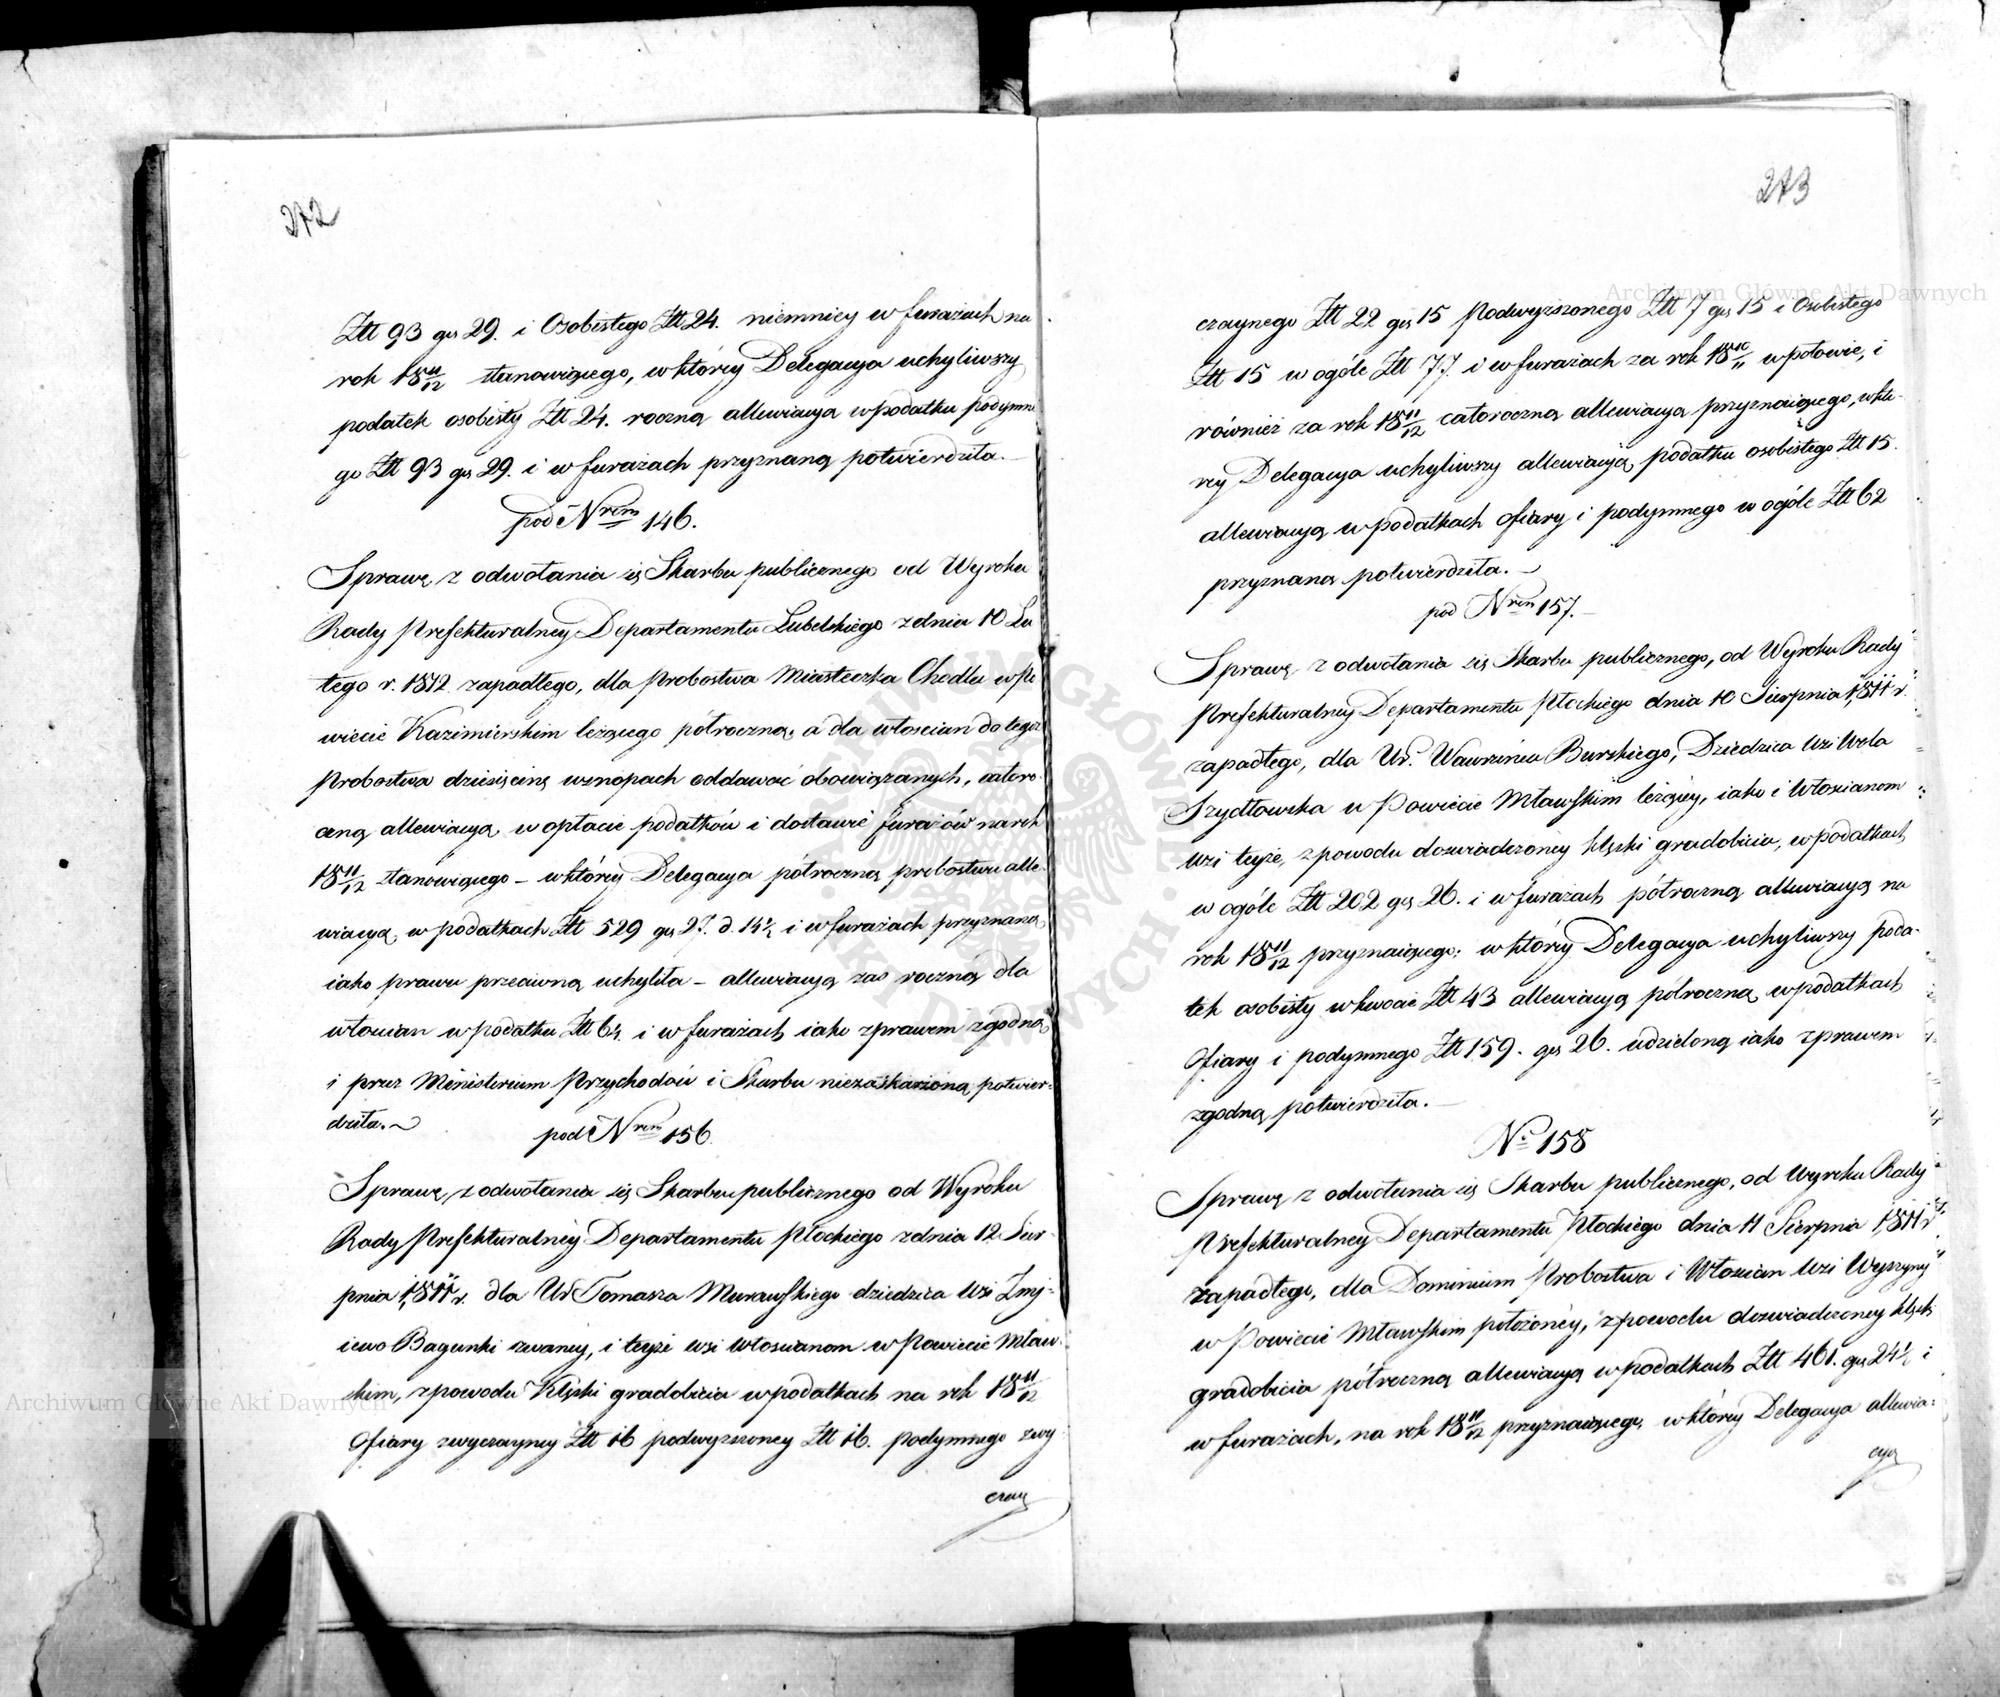 272
Złł 93 gr 29. i Osobistego Złł 24. niemniey w furażach na
rok 18 11/12 stanowiącego, w któréy Delegacya uchyliwszy
podatek osobisty Złł 24. roczną allewiacyą w podatku podymne
go Złł 93 gr 29. i w furażach przyznaną potwierdziła.—
pod Nrem 146.
Sprawę z odwołania się Skarbu publicznego od Wyroku
Rady Prefekturalney Departamentu Lubelskiego z dnia 10 Lu
tego r. 1812 zapadłego, dla Probostwa Miasteczka Chodla w Po
wiecie Kazimierskim leżącego półroczną, a dla włościan do tegoż
Probostwa dziesięcinę w snopach oddawać obowiązanych, całoro
czną allewiacyą w opłacie podatków i dostawie furażów na rok
18 11/12 stanowiącego – w któréy Delegacya półroczną probostwu alle-
wiacyą w podatkach Złł 529 gr 27. d. 14½ i w furażach przyznaną
iako prawu przeciwną uchyliła – allewiacyą zaś roczną dla
włościan w podatku Złł 64. i w furażach iako z prawem zgodną
i przez Ministerium Przychodów i Skarbu niezaskarżoną potwier-
dziła.~
pod Nrem 156.
Sprawę z odwołania się Skarbu publicznego od Wyroku
Rady Prefekturalnéy Departamentu Płockiego z dnia 12 Sier-
pnia 1811 r. dla Ur Tomasza Murawskiego dziedzica Wsi Żmi-
iewo Bagunki zwanéy, i teyże wsi Włościanom w Powiecie Mław-
skim, z powodu Klęski gradobicia w podatkach na rok 18 11/12
Ofiary zwyczayney Złł 16 podwyższoney Złł 16. podymnego zwy
czay
273
czaynego Złł 22 gr 15 Podwyższonego Złł 7 gr 15 i Osobistego
Złł 15 w ogóle Złł 77. i w furażach za rok 18 10/11 w połowie, i
również za rok 18 11/12 całoroczną allewiacyą przyznaiącego, w któ-
rey Delegacya uchyliwszy allewiacyą podatku osobistego Złł 15.
allewiacyą w podatkach ofiary i podymnego w ogóle Złł 62
przyznaną potwierdziła.—
pod Nrem 157.—
Sprawę z odwołania się Skarbu publicznego, od Wyroku Rady
Prefekturalney Departamentu Płockiego dnia 10 Sierpnia 1811 r.
zapadłego, dla Ur. Wawrzińca Burskiego, Dziedzica Wsi Wola
Szydłowska w Powiecie Mławskim leżącéy, iako i Włościanom
wsi teyże, z powodu doświadczoney klęski gradobicia, w podatkach
w ogóle Złł 202 gr 26. i w furażach półroczną allewiacyą na
rok 18 11/12 przyznaiącego: w któréy Delegacya uchyliwszy poda-
tek osobisty w kwocie Złł 43 allewiacyą półroczną w podatkach
Ofiary i podymnego Złł 159. gr 26. udzieloną iako z prawem
zgodną potwierdziła.—
No 158
Sprawę z odwołania się Skarbu publicznego, od Wyroku Rady
Prefekturalney Departamentu Płockiego dnia 11 Sierpnia 1811 r
zapadłego, dla Dominium Probostwa i Włościan Wsi Wyszyny
w Powiecie Mławskim położonéy, z powodu doświadczoney klęski
gradobicia półroczną allewiacyą w podatkach Złł 461. gr 24½ i
w furażach, na rok 18 11/12 przyznaiącego, w któréy Delegacya allewia-
cyą
Archiwum Główne Akt Dawnych
Archiwum Główne Akt Dawnych